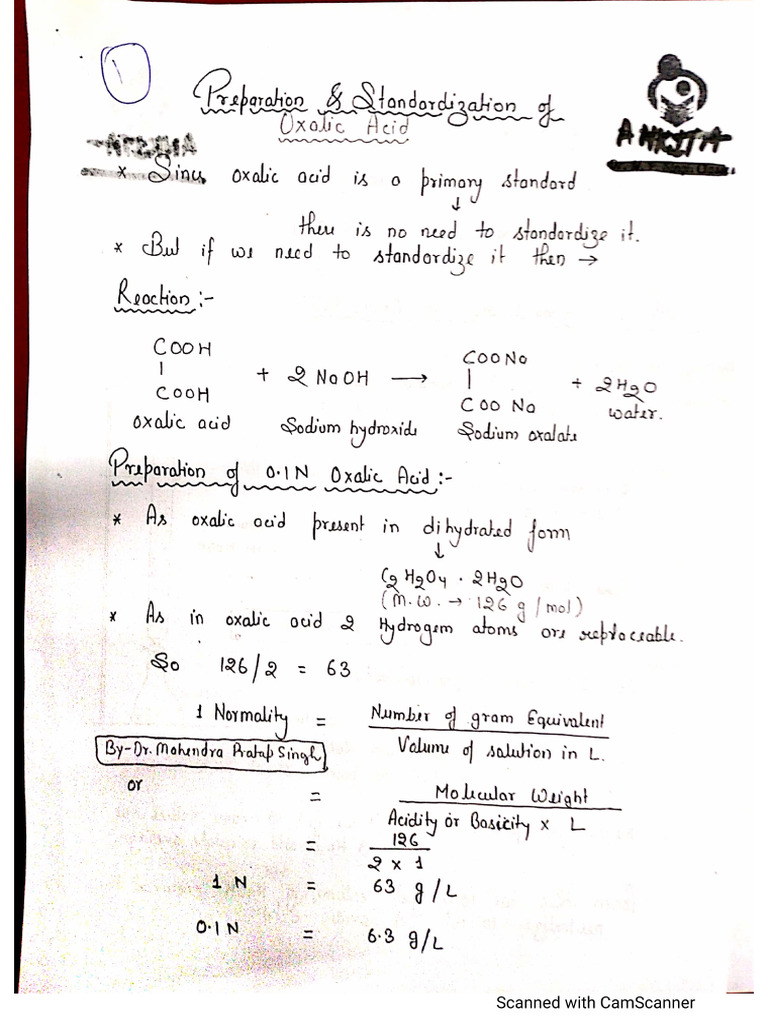 1
Preparation & Standardization of
Oxalic Acid
ANKITA
* Since oxalic acid is a primary standard
↓
there is no need to standardize it.
* But if we need to standardize it then →
Reaction :-
COOH
|
COOH
+ 2 NaOH →
COONa
|
COO Na
+ 2H2O
oxalic acid Sodium hydroxide Sodium oxalate water.
Preparation of 0.1N Oxalic Acid :-
* As oxalic acid present in dihydrated form
↓
C2H2O4 . 2H2O
(M.W. → 126 g/mol)
* As in oxalic acid 2 Hydrogen atoms are replaceable.
So 126/2 = 63
1 Normality = Number of gram Equivalent
Volume of solution in L.
By-Dr. Mahendra Pratap Singh
or = Molecular Weight
Acidity or Basicity x L
= 126
2 x 1
1 N = 63 g/L
0.1 N = 6.3 g/L
Scanned with CamScanner